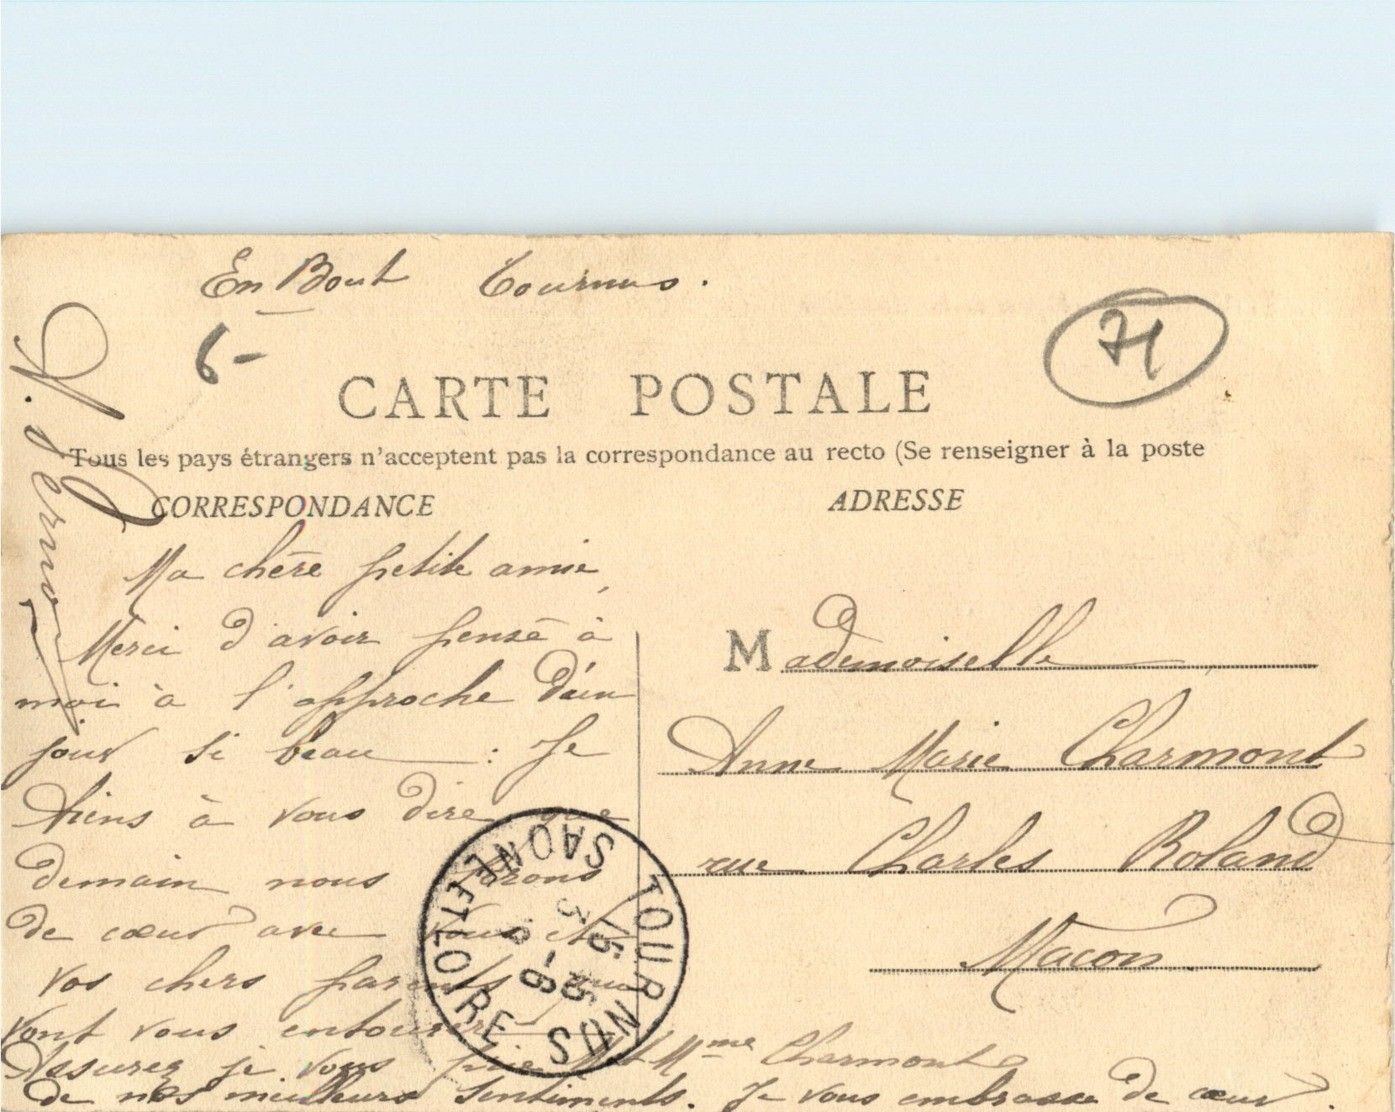 En Bout Tournus.
6-
71
CARTE POSTALE
Tous les pays étrangers n'acceptent pas la correspondance au recto (Se renseigner à la poste
CORRESPONDANCE
ADRESSE
Ma chère petite amie,
Merci d'avoir pensé à
moi à l'approche d'un
jour si beau : Je
viens à vous dire que
demain nous serons
de cœur avec vous et
vos chers parents qui
vont vous entourer
Assurez je vous prie Mme Charmont
de nos meilleurs sentiments. Je vous embrasse de cœur.
Mademoiselle
Anne Marie Charmont
rue Charles Roland
Macon
TOURNUS
SAONE ET LOIRE